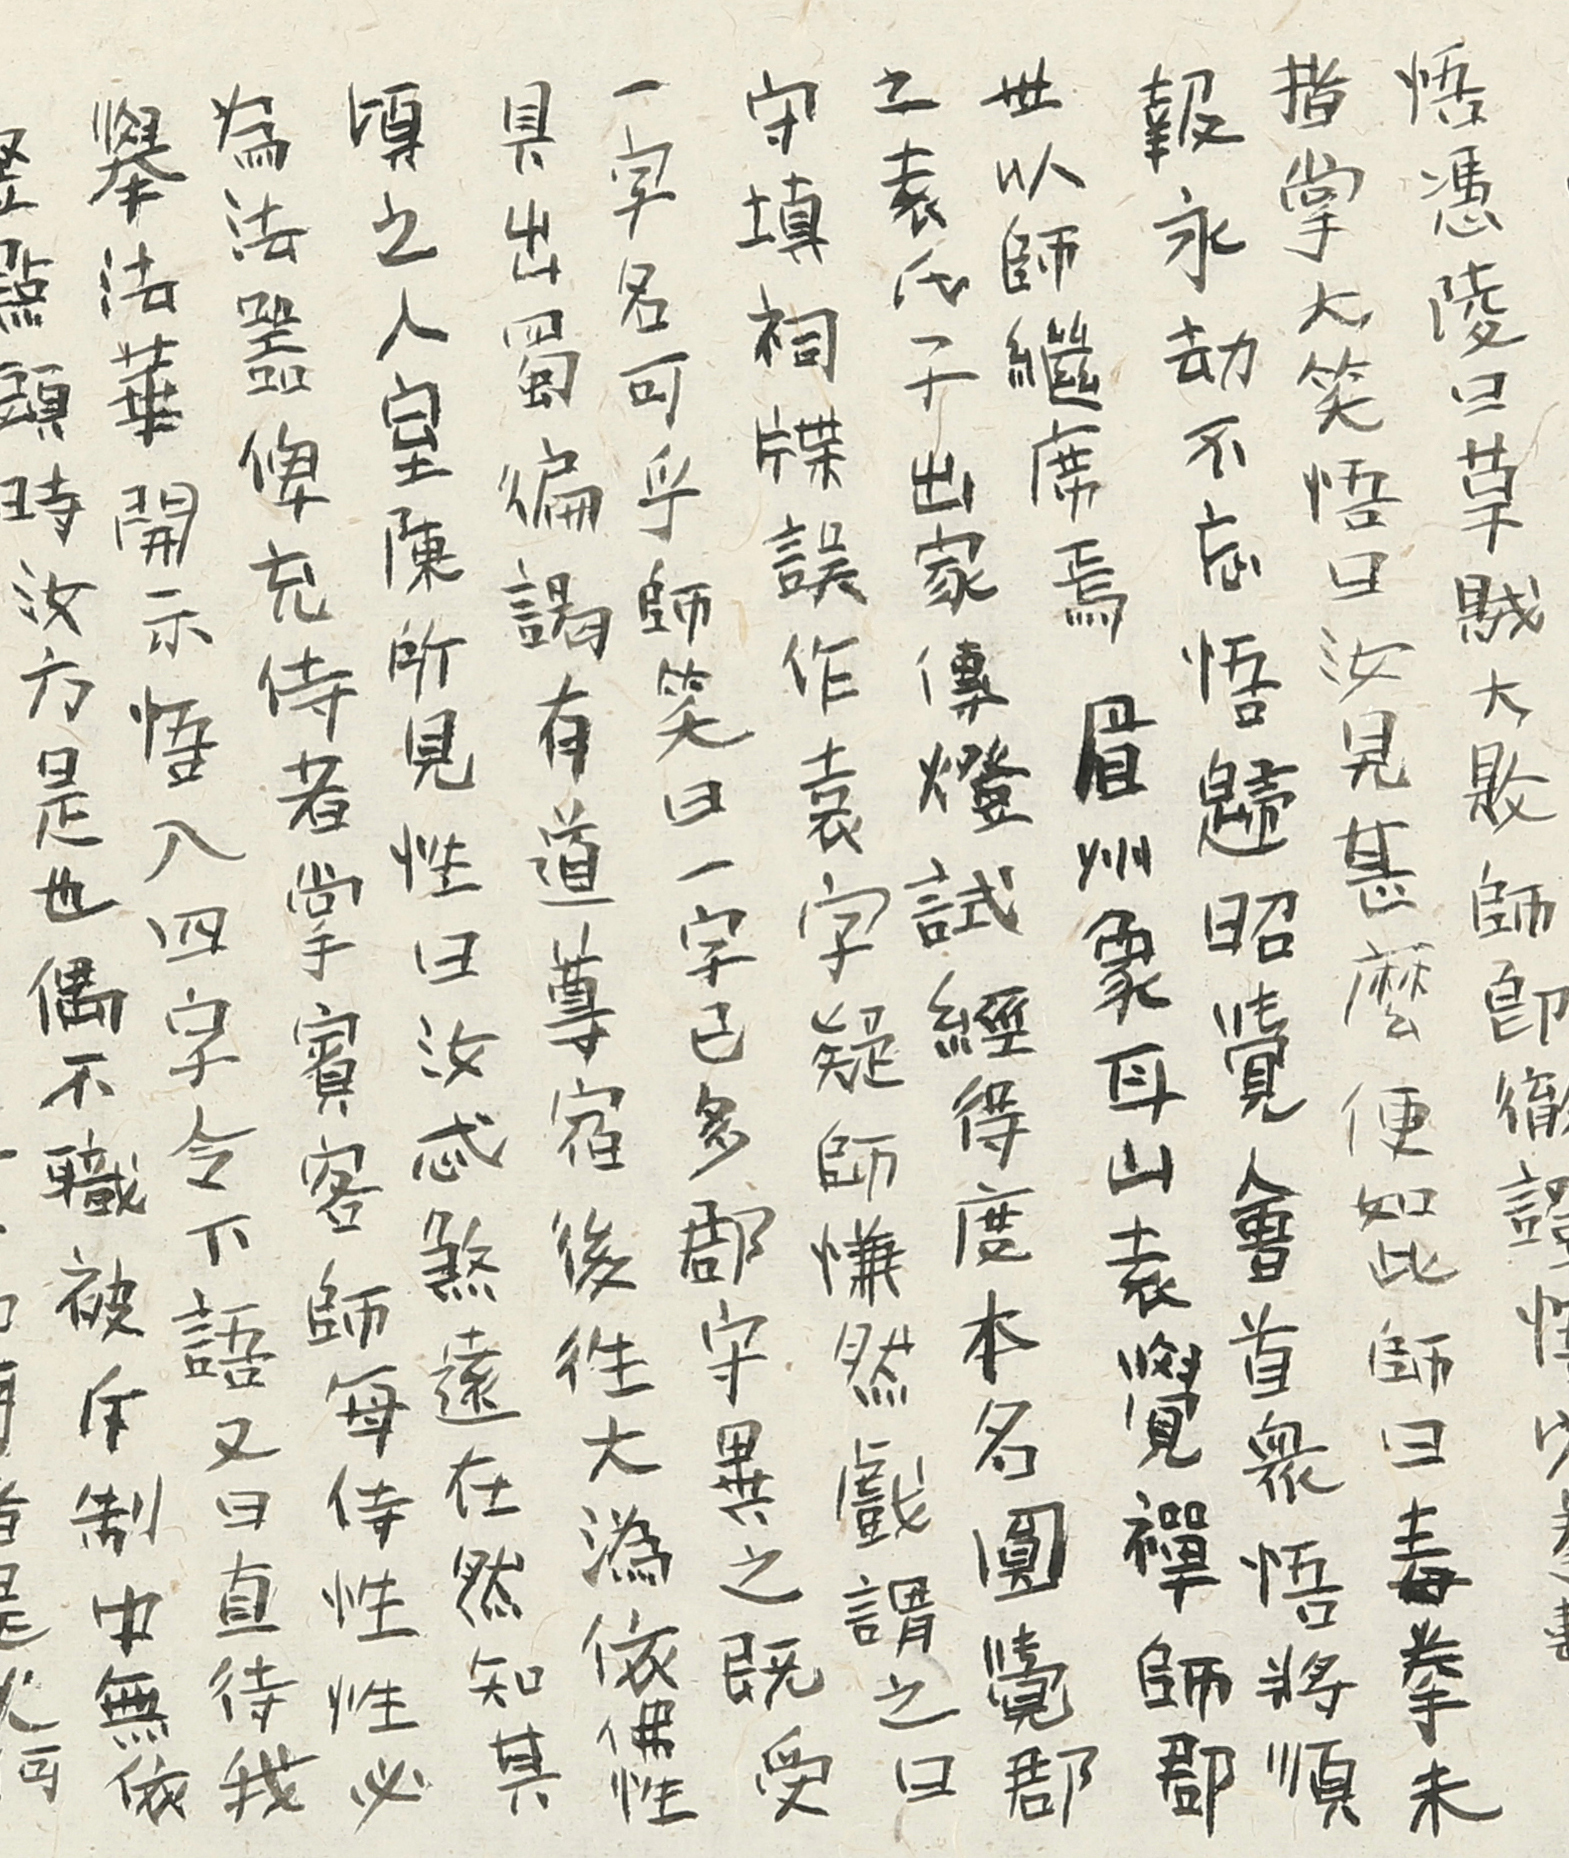 悟憑陵曰草賊大敗師即徹證悟以拳
指掌大笑悟曰汝見甚麼便如此師曰毒拳未
報永劫不忘悟歸昭覺會首衆悟將順
世以師繼席焉 眉州象耳山袁覺禪師郡
之袁氏子出家傳燈試經得度本名圓覺郡
守填祠牒誤作袁字疑師慊然戲謂之曰
一字名可乎師笑曰一字已多郡守異之既受
具出蜀徧謁有道尊宿後往大溈依佛性
頃之入室陳所見性曰汝忒煞遠在然知其
為法器俾充侍者掌賓客師每侍性性必
舉法華開示悟入四字令下語又曰直待我
豎點頭時汝方是也偶不職被斥制中無依